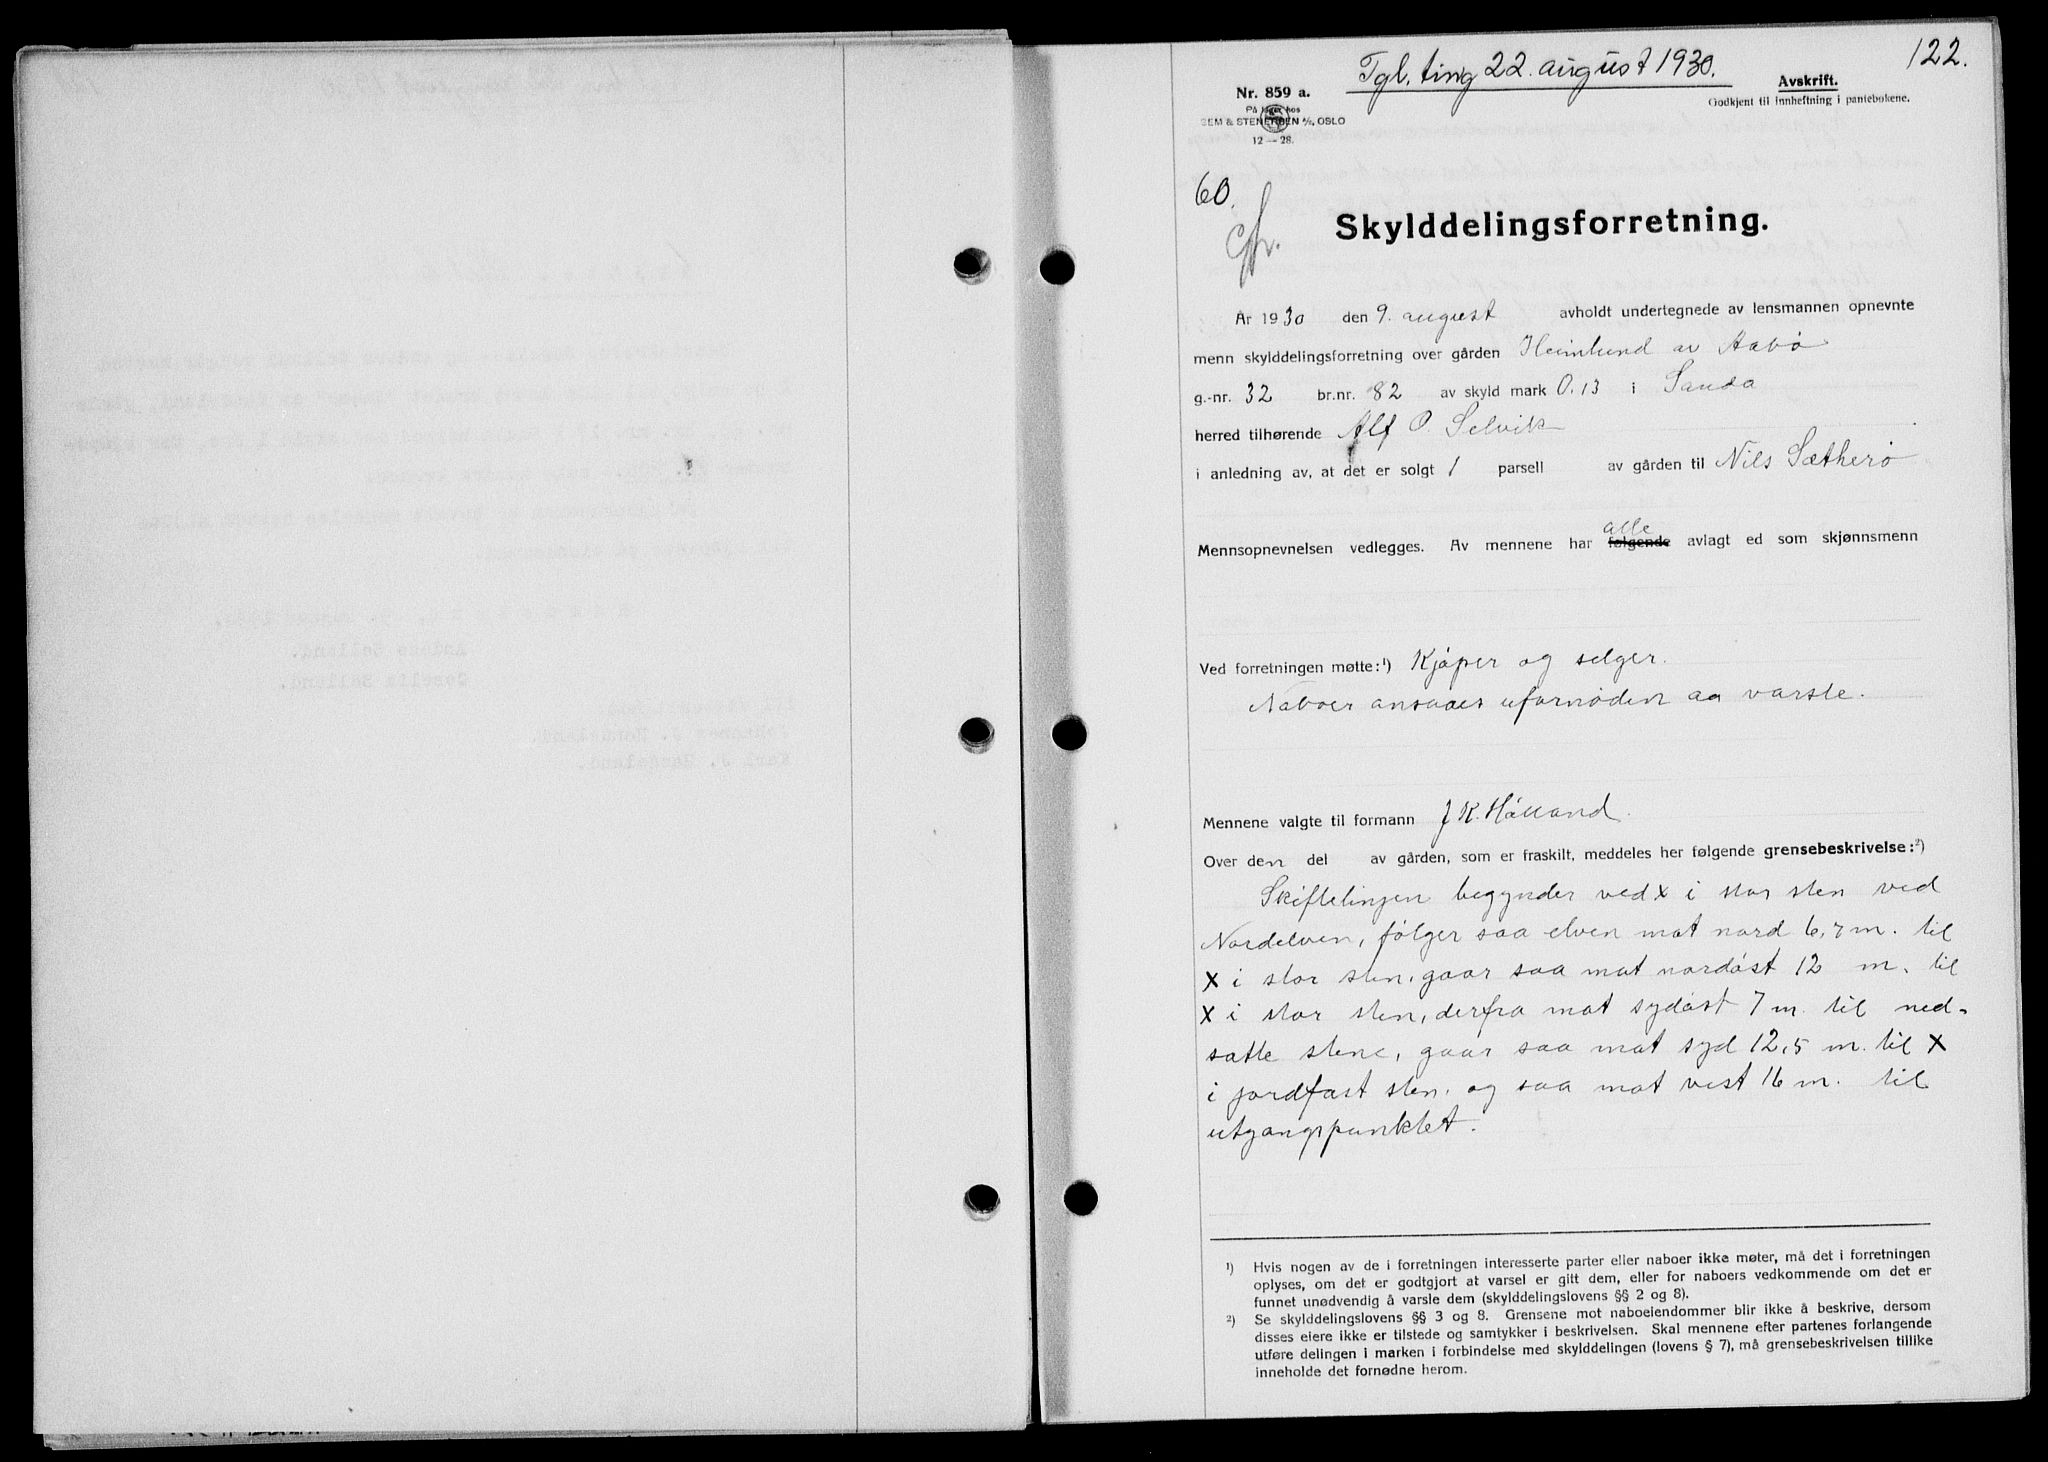 122.
Tgl. ting 22. august 1930.
Nr. 859 a.
På lager hos
SEM & STENERSEN A/S, OSLO
12 — 28.
Avskrift.
Godkjent til innheftning i pantebøkene.
60.
Skylddelingsforretning.
År 1930 den 9. august avholdt undertegnede av lensmannen opnevnte
menn skylddelingsforretning over gården Heimlund av Aabø
g.-nr. 32 br.nr. 82 av skyld mark 0.13 i Sauda
herred tilhørende Alf O. Selvik
i anledning av, at det er solgt 1 parsell av gården til Nils Sætherø
alle
Mennsopnevnelsen vedlegges. Av mennene har følgende avlagt ed som skjønnsmenn
Ved forretningen møtte:¹) Kjøper og selger.
Naboer ansaaes ufornøden aa varsle.
Mennene valgte til formann J K. Hålland.
Over den del av gården, som er fraskilt, meddeles her følgende grensebeskrivelse:²)
Skiftelinjen begynder ved x i stor sten ved
Nordelven, følger saa elven mot nord 6,7 m. til
x i stor sten, gaar saa mot nordøst 12 m. til
x i stor sten, derfra mot sydøst 7 m. til ned-
satte stene, gaar saa mot syd 12,5 m. til x
i jordfast sten, og saa mot vest 16 m. til
utgangspunktet.
¹) Hvis nogen av de i forretningen interesserte parter eller naboer ikke møter, må det i forretningen
oplyses, om det er godtgjort at varsel er gitt dem, eller for naboers vedkommende om det er
funnet unødvendig å varsle dem (skylddelingslovens §§ 2 og 8).
²) Se skylddelingslovens §§ 3 og 8. Grensene mot naboeiendommer blir ikke å beskrive, dersom
disses eiere ikke er tilstede og samtykker i beskrivelsen. Skal mennene efter partenes forlangende
utføre delingen i marken i forbindelse med skylddelingen (lovens § 7), må grensebeskrivelsen tillike
inneholde det fornødne herom.